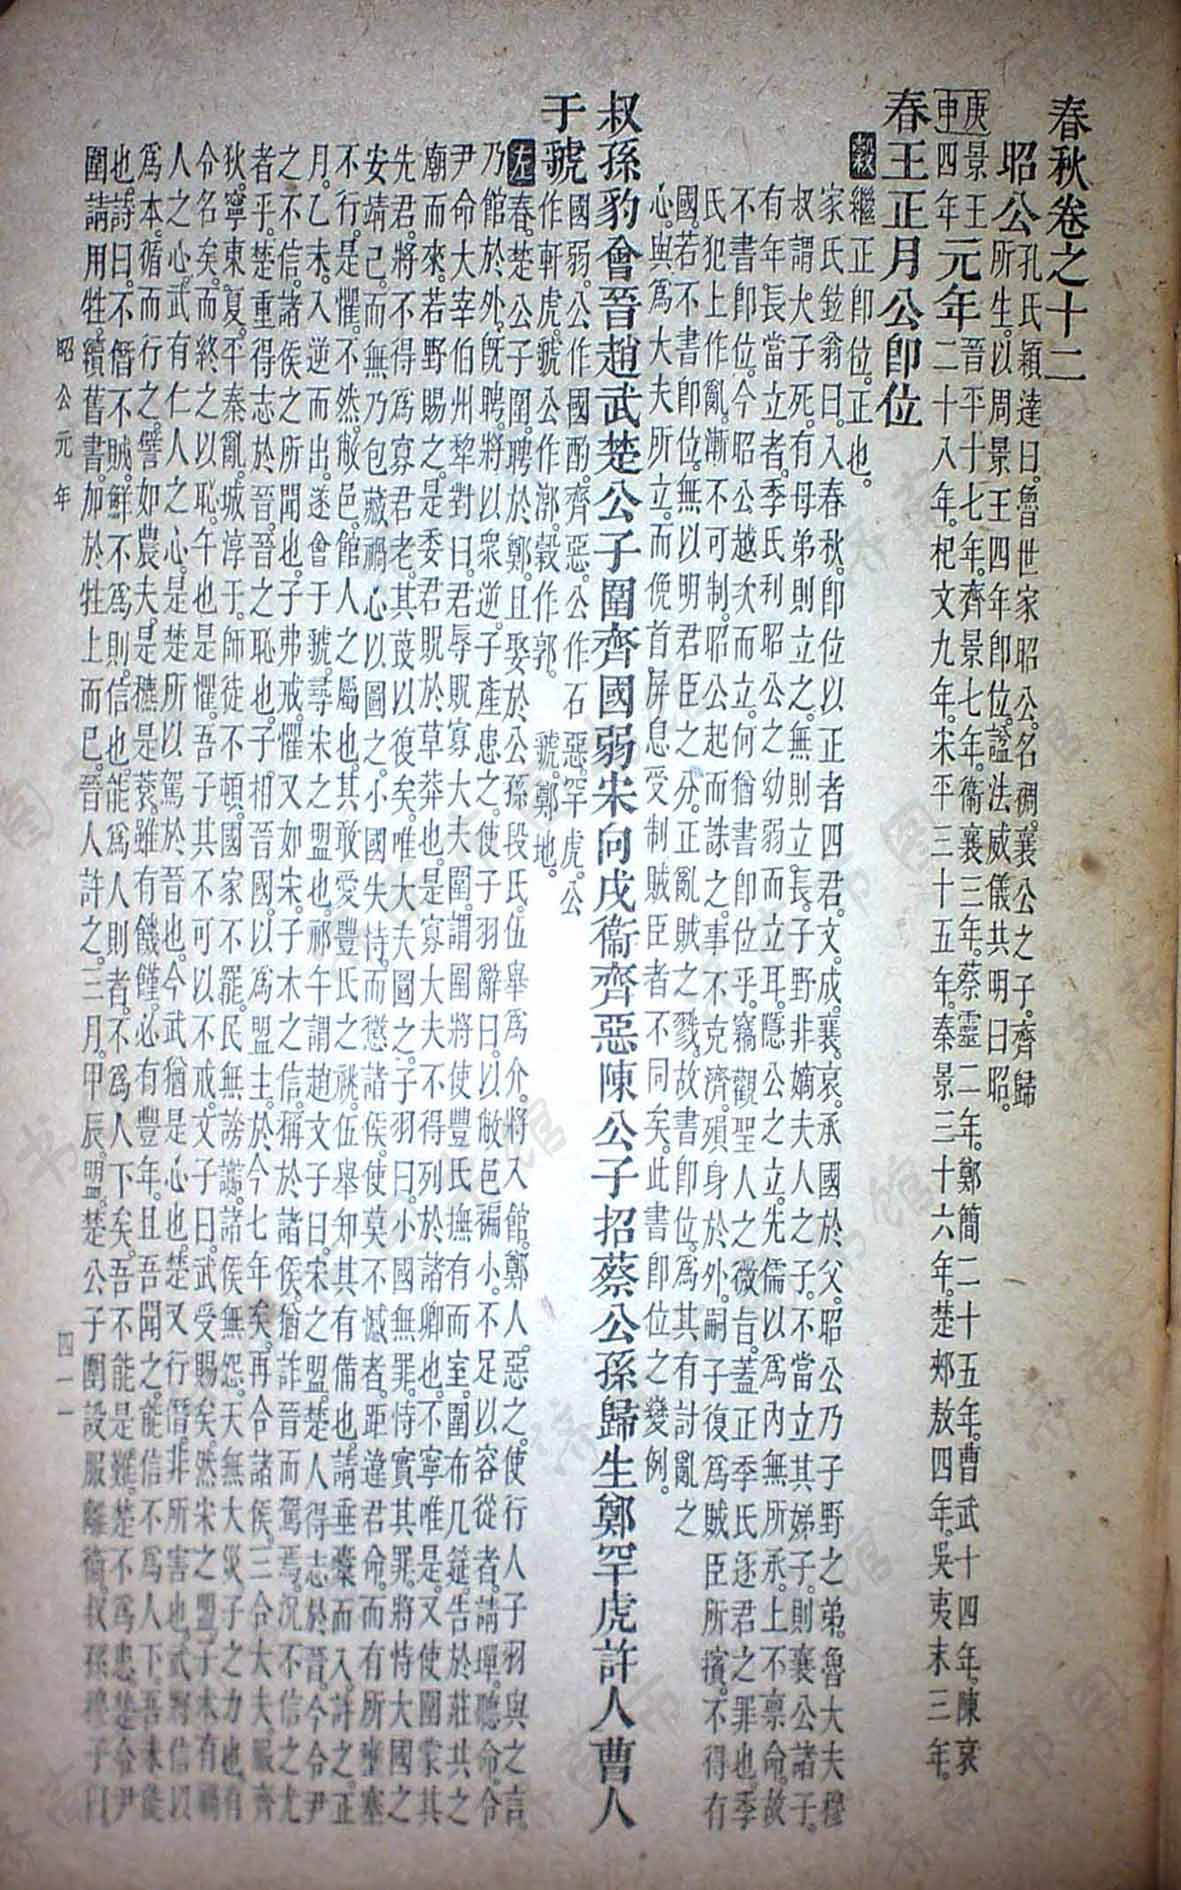 春秋卷之十二
昭公孔氏穎達曰。魯世家昭公。名裯。襄公之子。齊歸
所生。以周景王四年卽位。謚法威儀共明曰昭。
庚申景王四年元年晉平十七年。齊景七年。衞襄三年。蔡靈二年。鄭簡二十五年。曹武十四年。陳哀
二十八年。杞文九年。宋平三十五年。秦景三十六年。楚郟敖四年。吳夷末三年。
春王正月公卽位
穀繼正卽位。正也。
家氏鉉翁曰。入春秋。卽位以正者四君。文。成。襄。哀。承國於父。昭公乃子野之弟。魯大夫穆
叔謂大子死。有母弟則立之。無則立長。子野非嫡夫人之子。不當立其娣子。則襄公諸子。
有年長當立者。季氏利昭公之幼弱而立耳。隱公之立。先儒以爲內無所承。上不禀命。故
不書卽位。今昭公越次而立。何猶書卽位乎。竊觀聖人之微旨。蓋正季氏逐君之罪也。季
氏犯上作亂。漸不可制。昭公起而誅之。事不克濟。殞身於外。嗣子復爲賊臣所擯。不得有
國。若不書卽位。無以明君臣之分。正亂賊之戮。故書卽位。爲其有討亂之
心。與爲大夫所立。而俛首屏息。受制賊臣者不同矣。此書卽位之變例。
叔孫豹會晉趙武楚公子圍齊國弱宋向戌衞齊惡陳公子招蔡公孫歸生鄭罕虎許人曹人
于虢國弱。公作國酌。齊惡。公作石惡。罕虎。公
作軒虎。虢公作漷。穀作郭。　虢。鄭地。
左春。楚公子圍聘於鄭。且娶於公孫段氏。伍舉爲介。將入館。鄭人惡之。使行人子羽與之言。
乃館於外。旣聘。將以衆逆。子產患之。使子羽辭曰。以敝邑褊小。不足以容從者。請墠聽命。令
尹命大宰伯州犂對曰。君辱貺寡大夫圍。謂圍將使豐氏撫有而室。圍布几筵。告於莊共之
廟而來。若野賜之。是委君貺於草莽也。是寡大夫不得列於諸卿也。不寧唯是。又使圍蒙其
先君。將不得爲寡君老。其蔑以復矣。唯大夫圖之。子羽曰。小國無罪。恃實其罪。將恃大國之
安靖己。而無乃包藏禍心以圖之。小國失恃。而懲諸侯。使莫不憾者。距違君命。而有所壅塞
不行。是懼。不然。敝邑。館人之屬也。其敢愛豐氏之祧。伍舉知其有備也。請垂櫜而入。許之。正
月。乙未。入逆而出。遂會于虢。尋宋之盟也。祁午謂趙文子曰。宋之盟。楚人得志於晉。今令尹
之不信。諸侯之所聞也。子弗戒。懼又如宋。子木之信。稱於諸侯。猶詐晉而駕焉。況不信之尤
者乎。楚重得志於晉。晉之恥也。子相晉國。以爲盟主。於今七年矣。再合諸侯。三合大夫。服齊
狄。寧東夏。平秦亂。城淳于。師徒不頓。國家不罷。民無謗讟。諸侯無怨。天無大災。子之力也。有
令名矣。而終之以恥。午也是懼。吾子其不可以不戒。文子曰。武受賜矣。然宋之盟。子木有禍
人之心。武有仁人之心。是楚所以駕於晉也。今武猶是心也。楚又行僭。非所害也。武將信以
爲本。循而行之。譬如農夫。是穮是蓘。雖有饑饉。必有豐年。且吾聞之。能信不爲人下。吾未能
也。詩曰。不僭不賊。鮮不爲則。信也。能爲人則者。不爲人下矣。吾不能是難。楚不爲患。楚令尹
圍請用牲。讀舊書。加於牲上而已。晉人許之。三月。甲辰。盟。楚公子圍設服離衞。叔孫穆子曰
昭公元年
四一一